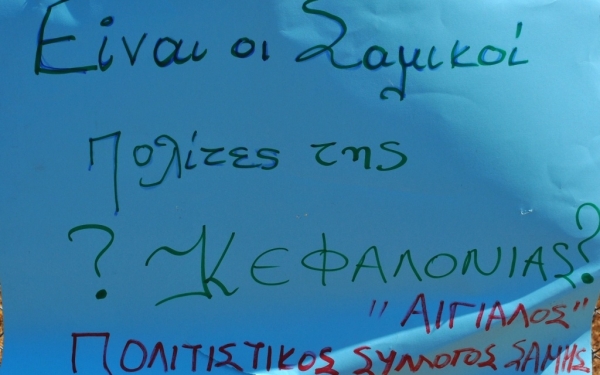 Είναι οι Σαμικοί
πολίτες της
? ΚΕΦΑΛΟΝΙΑΣ?
"ΑΙΓΙΑΛΟΣ"
ΠΟΛΙΤΙΣΤΙΚΟΣ ΣΥΛΛΟΓΟΣ ΣΑΜΗΣ